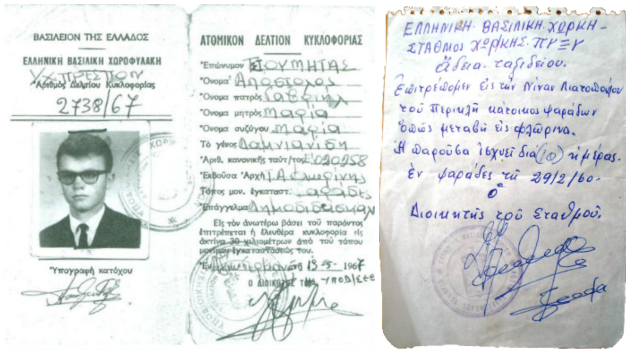 ΒΑΣΙΛΕΙΟΝ ΤΗΣ ΕΛΛΑΔΟΣ
ΕΛΛΗΝΙΚΗ ΒΑΣΙΛΙΚΗ ΧΩΡΟΦΥΛΑΚΗ
Υ.Χ. ΠΡΕΣΠΩΝ
Ἀριθμὸς Δελτίου Κυκλοφορίας
2738/67
Ὑπογραφὴ κατόχου
ΑΤΟΜΙΚΟΝ ΔΕΛΤΙΟΝ ΚΥΚΛΟΦΟΡΙΑΣ
Ἐπώνυμον
Ὄνομα Απόστολος
Ὄνομα πατρὸς Γαβριήλ
Ὄνομα μητρὸς Μαρία
Ὄνομα συζύγου Μαρία
Τὸ γένος Δαμιανίδη
Ἀριθ. κανονικῆς ταὐτ/τος
Ἐκδοῦσα Ἀρχὴ Φλωρίνης
Τόπος μον. ἐγκαταστ.
Ἐπάγγελμα Δημοδιδάσκαλ
Εἰς τὸν ἀνωτέρω βάσει τοῦ παρόντος
ἐπιτρέπεται ἡ ἐλευθέρα κυκλοφορία εἰς
ἀκτῖνα 30 χιλιομέτρων ἀπὸ τοῦ τόπου
μονίμου ἐγκαταστάσεώς του.
1967
Ο ΔΙΟΙΚΗΤΗΣ
ΕΛΛΗΝΙΚΗ ΒΑΣΙΛΙΚΗ ΧΩΡΚΗ -
ΣΤΑΘΜΟΣ ΧΩΡΚΗΣ ΠΥΞΥ
άδεια ταξιδείου.
Επιτρέπομεν εις την Νίναν Λιατοπούλου
του Περικλή κάτοικος ψαράδων
όπως μεταβή εις φλώρινα.
Η παρούσα ισχύει διά (10) ημέρας.
εν ψαράδες τη 29/2/60.
Ο
Διοικητής του Σταθμού.